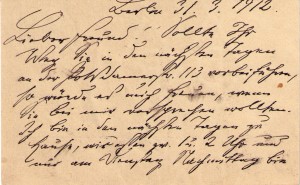 Berlin 31. 3. 1912.
Lieber Freund! Sollte Ihr
Weg Sie in den nächsten Tagen
an der Potsdamerstr. 113 vorbeiführen,
so würde es mich freuen, wenn
Sie bei mir vorsprechen wollten.
Ich bin in den nächsten Tagen zu
Hause, gr. 12. 2 Uhr und
nur am Dienstag Nachmittag bin